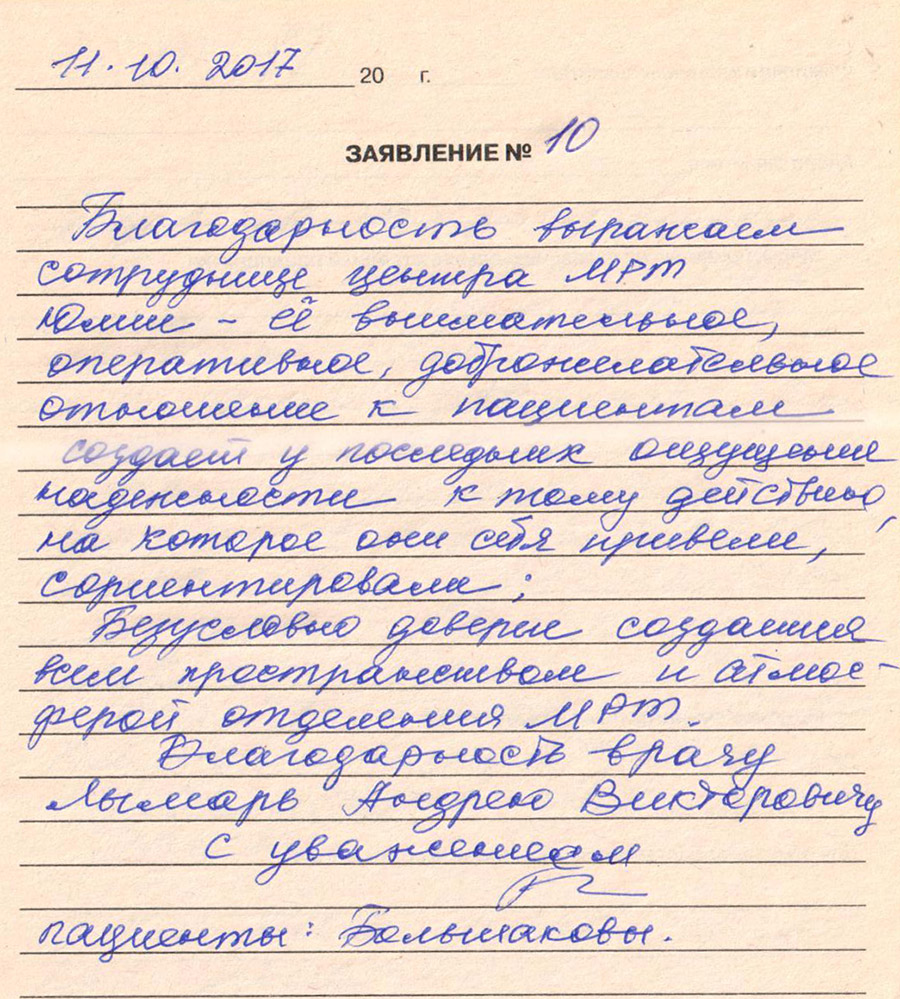 11.10.2017 20 г.
ЗАЯВЛЕНИЕ № 10
Благодарность выражаем
сотруднице центра МРТ
Юлии - её внимательное,
оперативное, доброжелательное
отношение к пациентам
создаёт у последних ощущение
надежности к тому действию,
на которое они себя привели,
сориентировали;
Безусловно доверие создания
всем пространством и атмос-
ферой отделения МРТ.
Благодарность врачу
Лымарь Андрею Викторовичу
с уважением
пациенты: Большаковы.